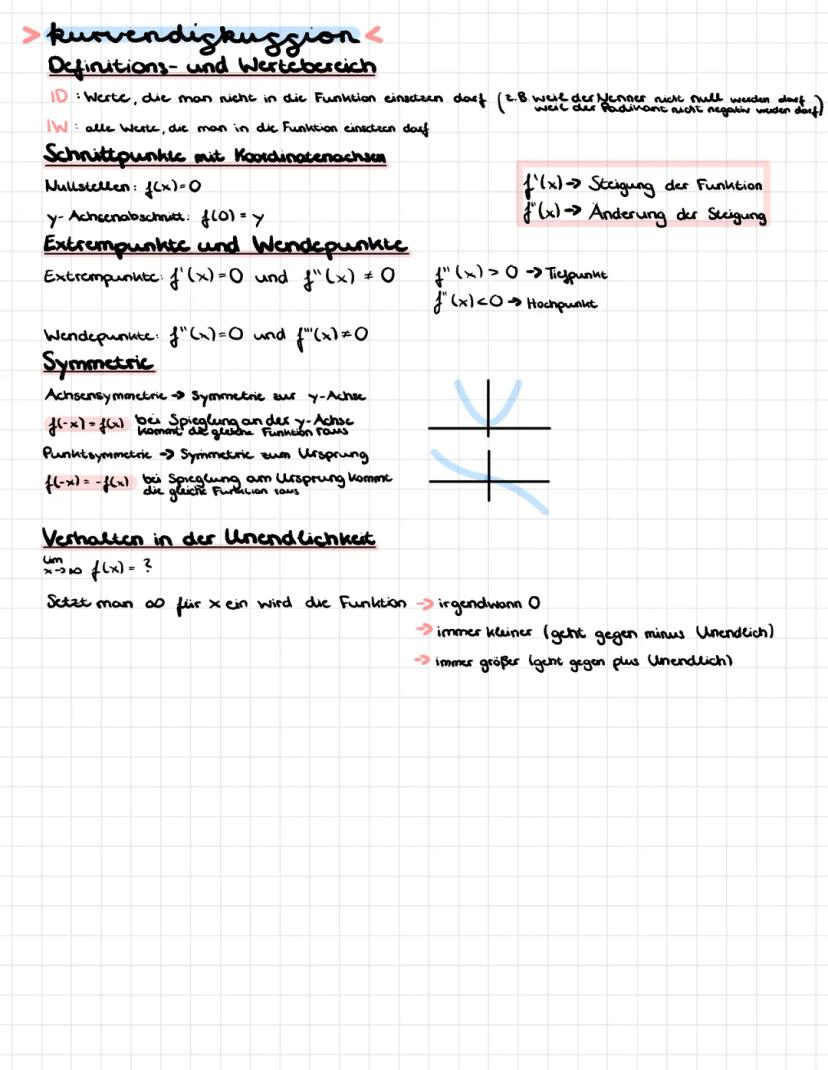 > kurvendiskussion <
Definitions- und Wertebereich
ID : Werte, die man nicht in die Funktion einsetzen darf (z.B. weil der Nenner nicht null werden darf
weil der Radikant nicht negativ werden darf)
IW : alle Werte, die man in die Funktion einsetzen darf
Schnittpunkte mit Koordinatenachsen
Nullstellen: f(x)=0
y-Achsenabschnitt: f(0) = y
f'(x) → Steigung der Funktion
f"(x) → Änderung der Steigung
Extrempunkte und Wendepunkte
Extrempunkte: f'(x)=0 und f"(x) ≠ 0
f"(x) > 0 → Tiefpunkt
f"(x) < 0 → Hochpunkt
Wendepunkte: f"(x)=0 und f'''(x)≠0
Symmetrie
Achsensymmetrie → Symmetrie zur y-Achse
f(-x) = f(x) bei Spieglung an der y-Achse
kommt die gleiche Funktion raus
Punktsymmetrie → Symmetrie zum Ursprung
f(-x) = -f(x) bei Spieglung am Ursprung kommt
die gleiche Funktion raus
Verhalten in der Unendlichkeit
lim x→∞ f(x) = ?
Setzt man ∞ für x ein wird die Funktion → irgendwann 0
→ immer kleiner (geht gegen minus Unendlich)
→ immer größer (geht gegen plus Unendlich)